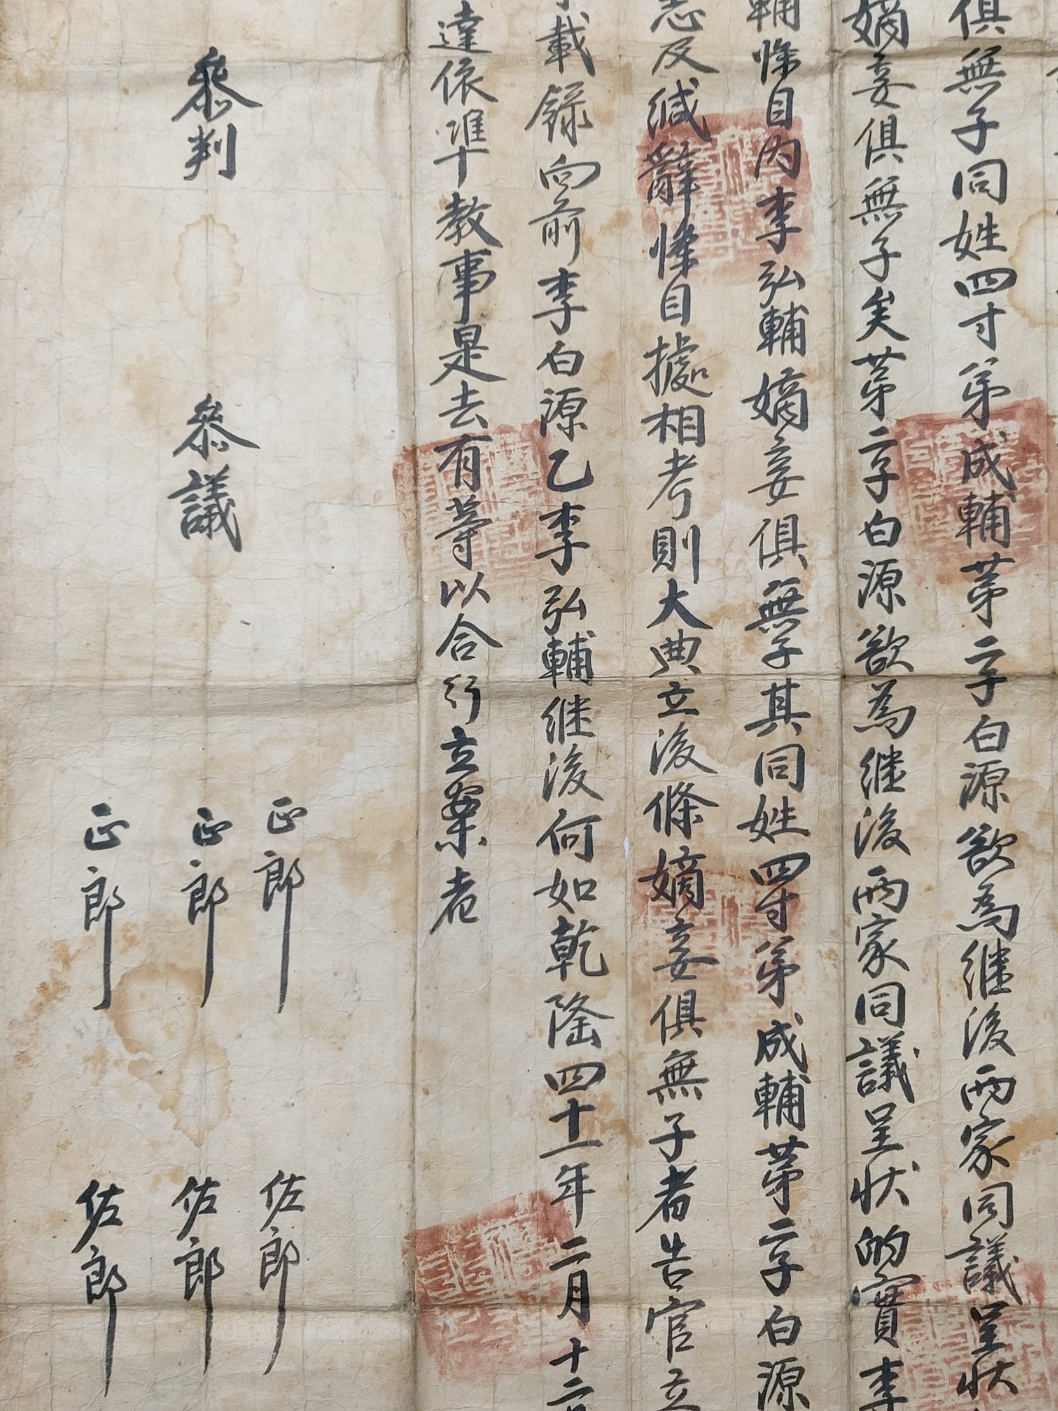 俱無子同姓四寸弟成輔第二子白源欲為継後両家同議呈狀
嫡妾俱無子矣第二子白源欲為継後両家同議呈狀的實李
輔條目內李弘輔嫡妾俱無子其同姓四寸弟成輔第二子白源
志及緘辭條目據相考則大典立後條嫡妾俱無子者告官立
載錄向前李白源乙李弘輔継後何如乾隆四十一年二月十二
達依準教事是去有等以合行立案者
叅判 叅議
正郎 佐郎
正郎 佐郎
正郎 佐郎